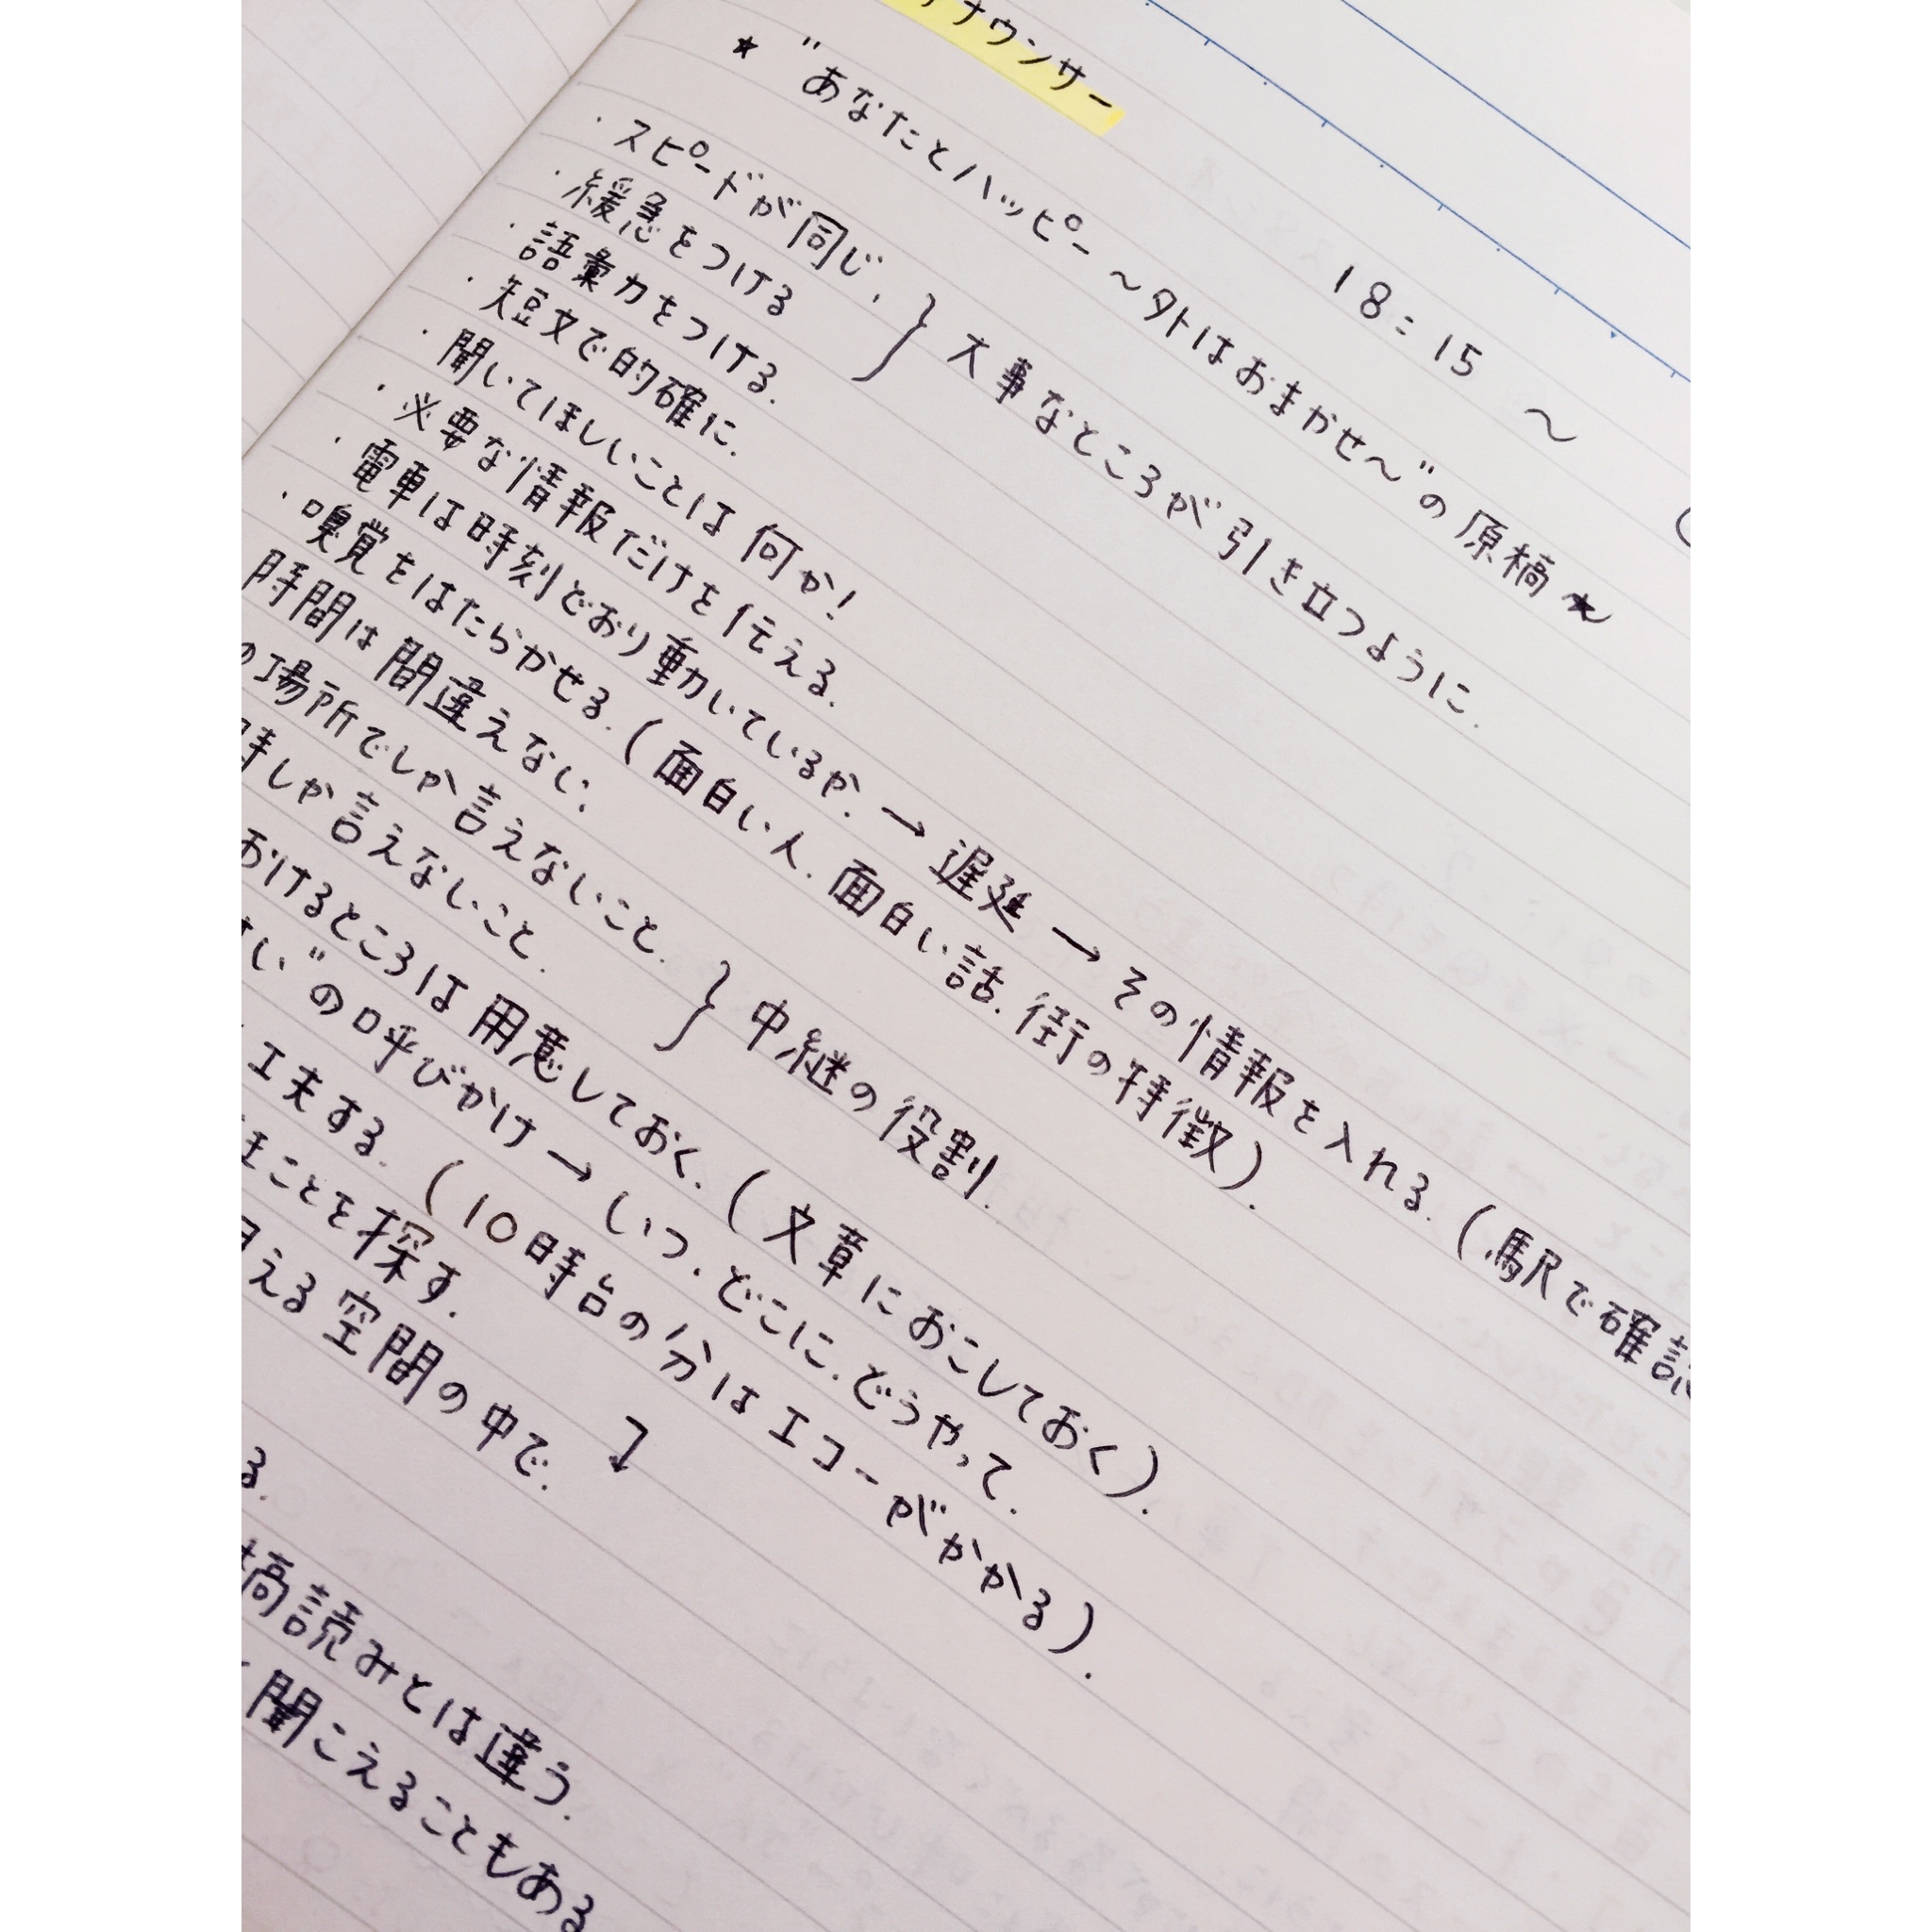 ナウンサー
18:15 ～
★ "あなたとハッピー ～外はおまかせ～"の原稿★
・スピードが同じ、
・緩急をつける
・語彙力をつける. } 大事なところが引き立つように.
・短文で的確に.
・聞いてほしいことは何か!
・必要な情報だけを伝える.
・電車は時刻どおり動いているか. → 遅延 → その情報を入れる. (駅で確認
・嗅覚をはたらかせる. (面白い人. 面白い話. 街の特徴).
時間は間違えない.
の場所でしか言えないこと.
時しか言えないこと. } 中継の役割.
おけるところは用意しておく. (文章におこしておく).
さい"の呼びかけ → いつ. どこに. どうやって.
工夫する. (10時台の分はエコーがかかる).
ことを探す.
える空間の中で. ↴
る.
稿読みとは違う.
聞こえることもある